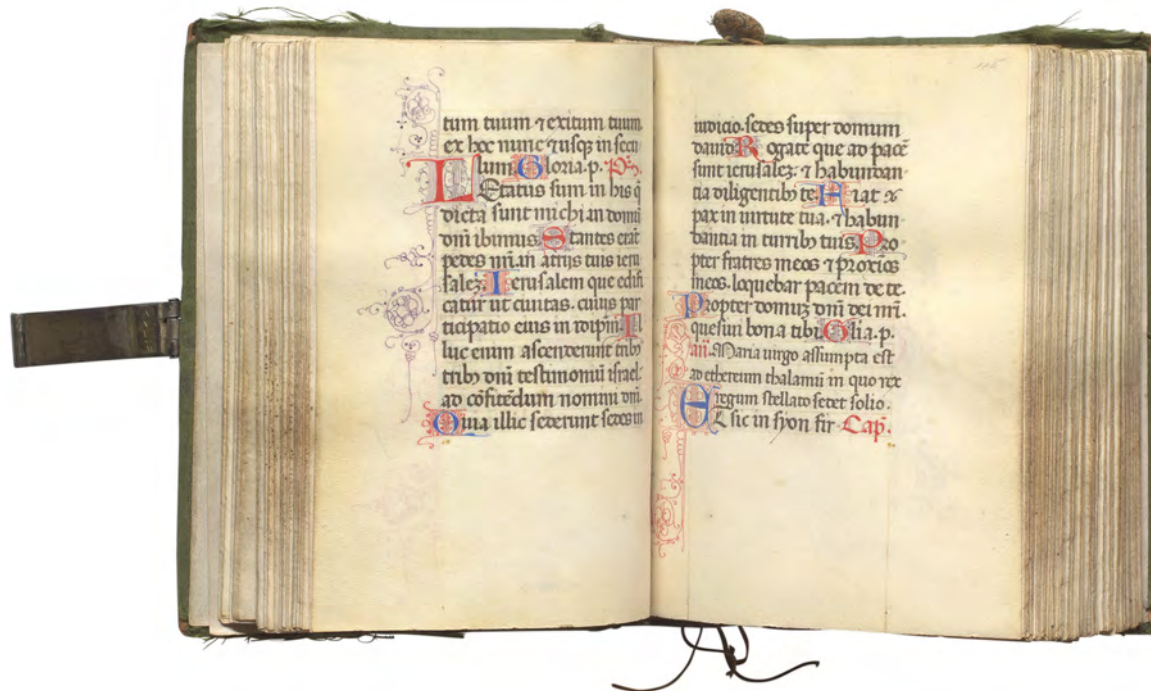 tum tuum ⁊ exitum tuum.
ex hoc nunc ⁊ usqꝫ in secu
lum Gloria. p. Ps̄.
LEtatus sum in his q̄
dicta sunt michi in domū
dn̄i ibimus. Stantes erāt
pedes nr̄i in atrijs tuis ieru
salēꝫ. Ierusalem que edifi
catur ut ciuitas. cuius par
ticipatio eius in idip̄m. Il
luc enim ascenderunt tribꝰ
tribꝰ dn̄i testimoniū israel.
ad cōfitēdum nomini dn̄i.
Quia illic sederunt sedes in
115
iudicio. sedes super domum
dauid Rogate que ad pacē
sunt ierusalēꝫ. ⁊ habundan
tia diligentibꝰ te. Fiat
pax in uirtute tua. ⁊ habun
dantia in turribꝰ tuis. Pro
pter fratres meos ⁊ proxīos
meos. loquebar pacem de te.
Propter domuꝫ dn̄i dei nr̄i.
quesiui bona tibi Glīa. p.
an̄. Maria uirgo assumpta est
ad ethereum thalamū in quo rex
regum stellato sedet solio.
Et sic in syon fir Cap̄.